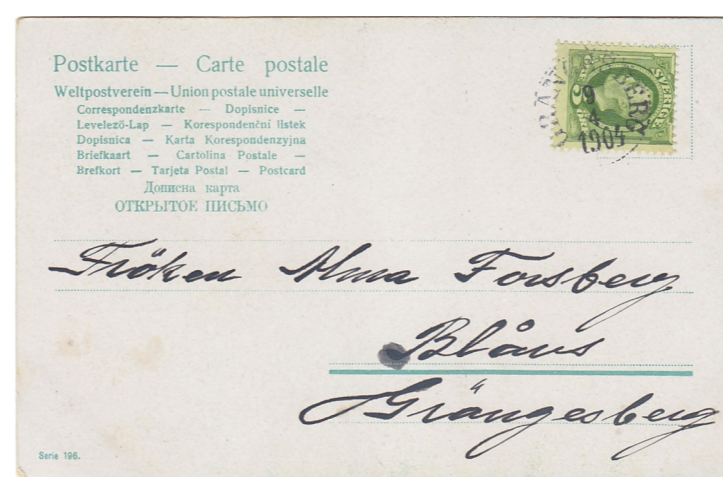 Postkarte — Carte postale
Weltpostverein — Union postale universelle
Correspondenzkarte — Dopisnice —
Levelező-Lap — Korespondenční listek
Dopisnica — Karta Korespondenzyjna
Briefkaart — Cartolina Postale —
Brefkort — Tarjeta Postal — Postcard
Дописна карта
ОТКРЫТОЕ ПИСЬМО
SVERIGE
9
4
1904
Fröken Alma Forsberg
Blåus
Grängesberg
Serie 196.